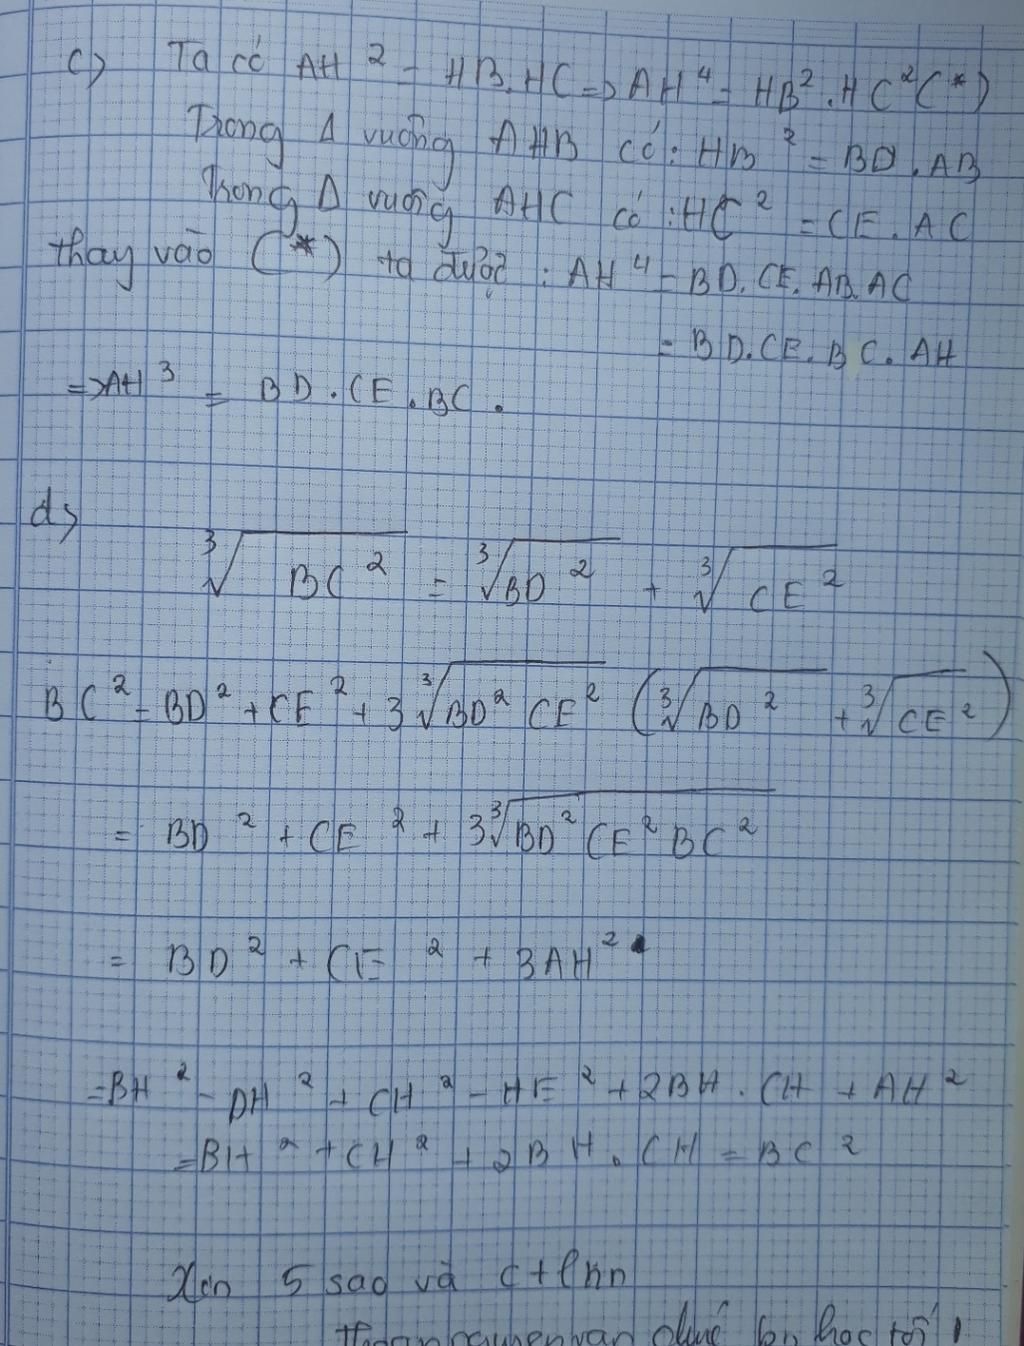 c) Ta có AH² = HB.HC => AH⁴ = HB².HC² (*)
Trong Δ vuông AHB có: HB² = BD.AB
Trong Δ vuông AHC có: HC² = CE.AC
thay vào (*) ta được: AH⁴ = BD.CE.AB.AC
= BD.CE.BC.AH
=> AH³ = BD.CE.BC.
d)
∛BC² = ∛BD² + ∛CE²
BC² = BD² + CE² + 3∛BD² CE² (∛BD² + ∛CE²)
= BD² + CE² + 3∛BD² CE² BC²
= BD² + CE² + 3AH²
= BH² - DH² + CH² - HE² + 2BH.CH + AH²
= BH² + CH² + 2BH.CH = BC²
Xin 5 sao và ctlhn
học tốt